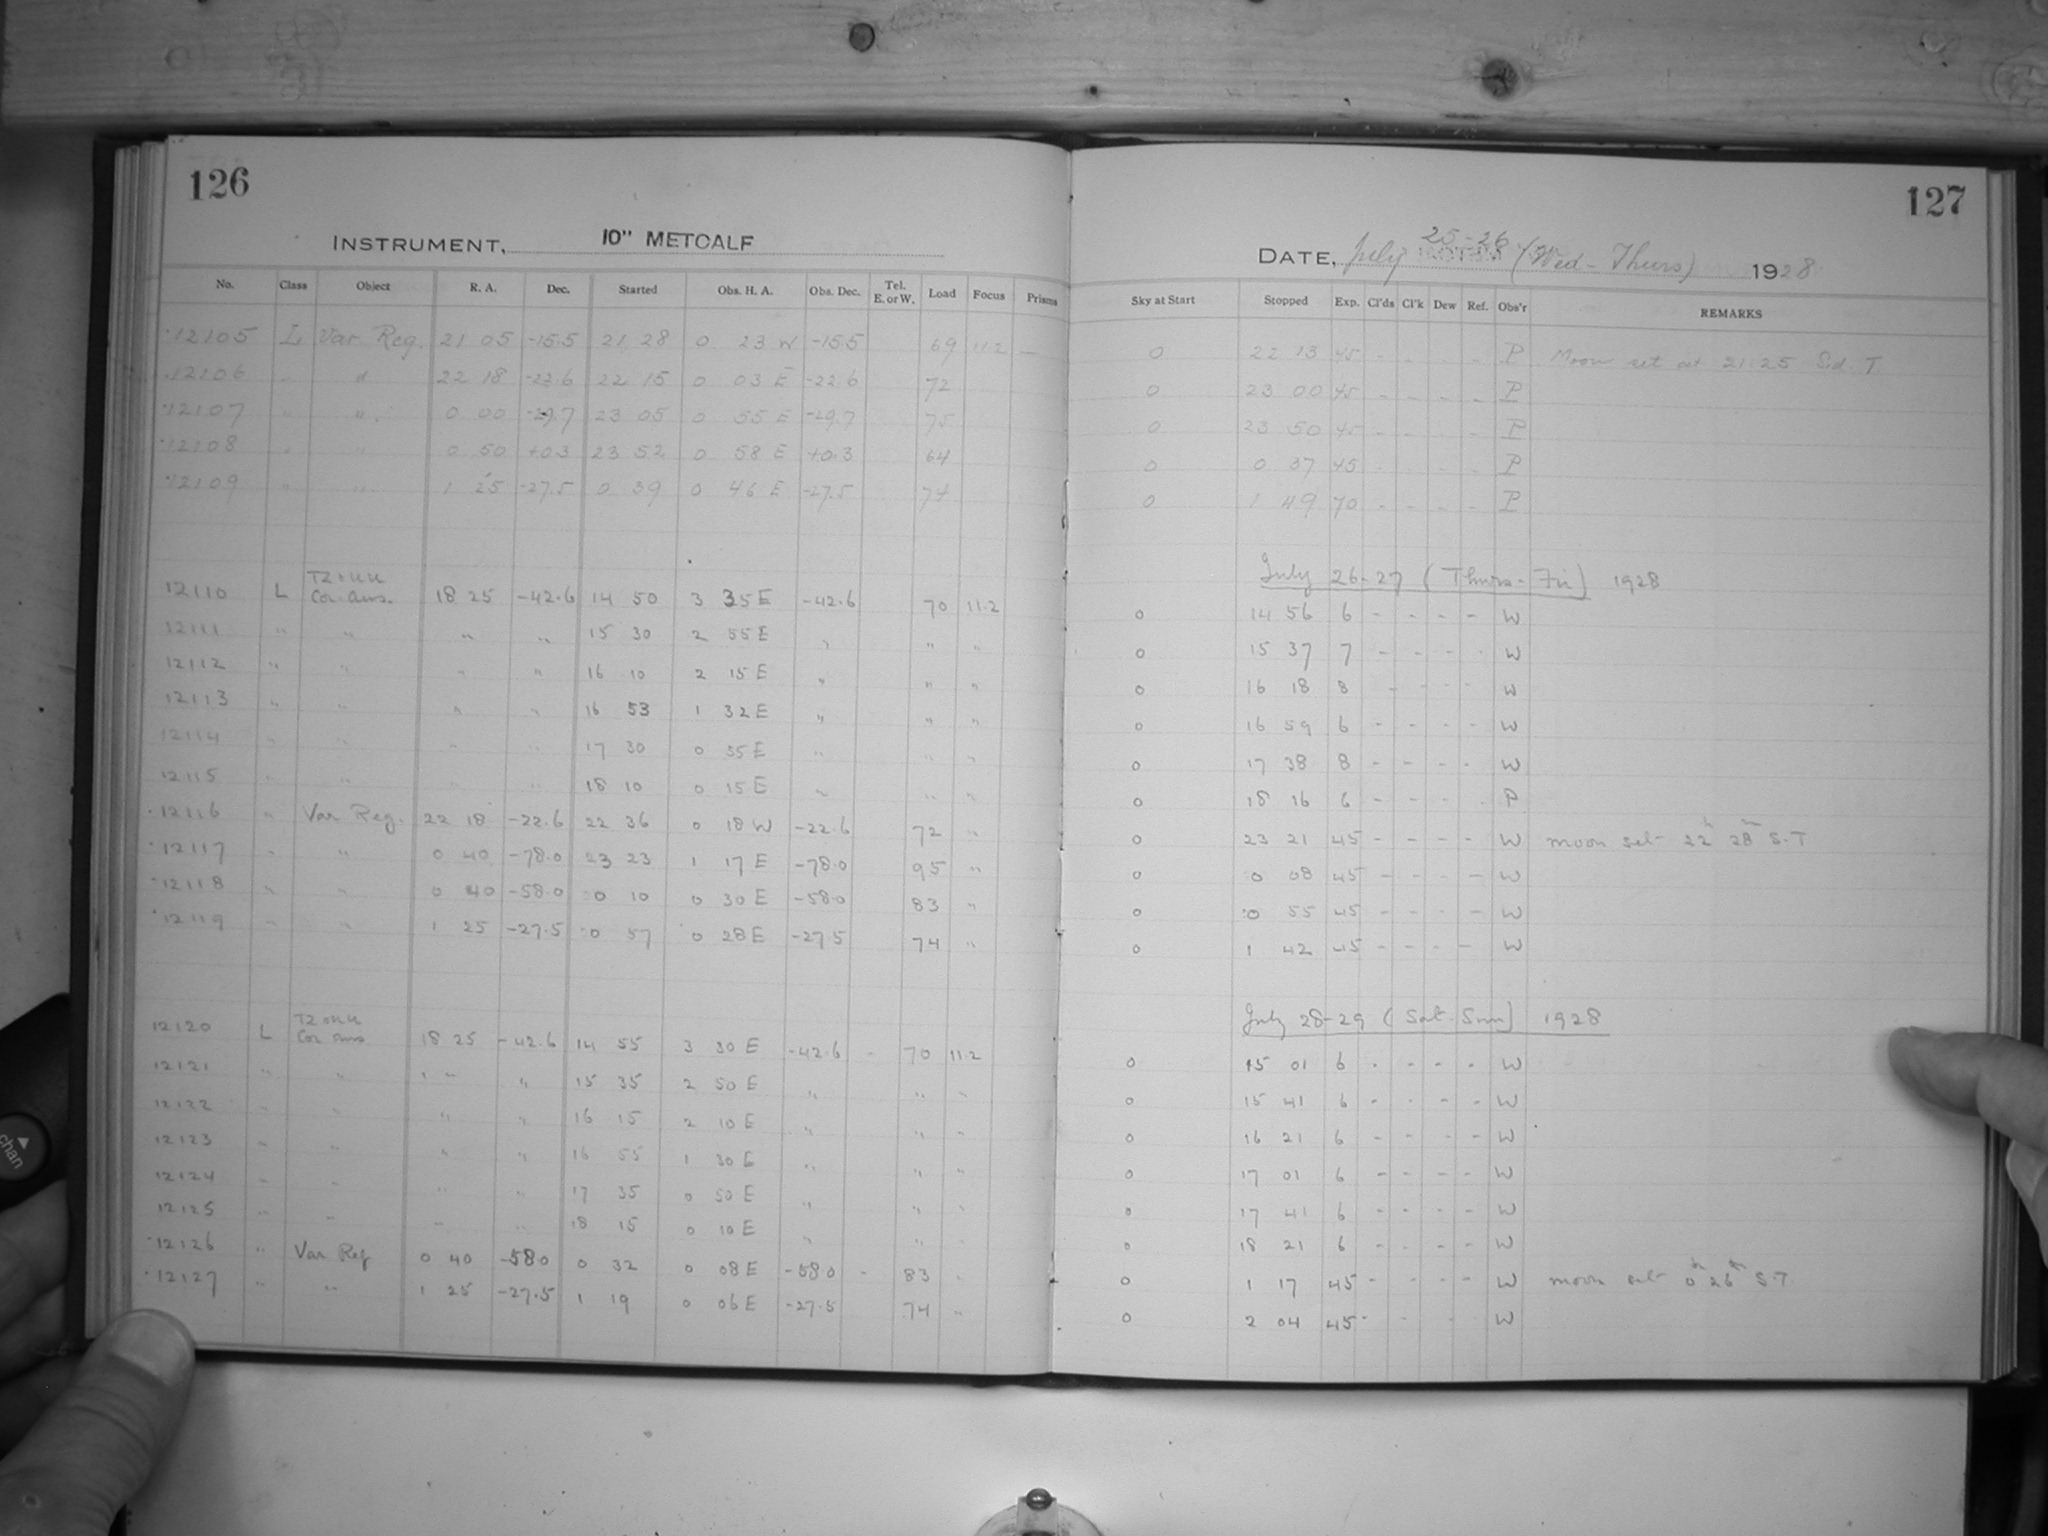 126
INSTRUMENT, 10" METCALF
No. Class Object R. A. Dec. Started Obs. H. A. Obs. Dec. Tel. E. or W. Load Focus Prisms
12105 L Var Reg. 21 05 -15.5 21 28 0 23 W -15.5 69 11.2 —
12106 " " 22 18 -22.6 22 15 0 03 E -22.6 72
12107 " " 0 00 -29.7 23 05 0 55 E -29.7 75
12108 " " 0 50 +0.3 23 52 0 58 E +0.3 64
12109 " " 1 25 -27.5 0 39 0 46 E -27.5 74
12110 L TZ and UU Cor. Aus. 18 25 -42.6 14 50 3 35 E -42.6 70 11.2
12111 " " " " 15 30 2 55 E " " "
12112 " " " " 16 10 2 15 E " " "
12113 " " " " 16 53 1 32 E " " "
12114 " " " " 17 30 0 35 E " " "
12115 " " " " 18 10 0 15 E " " "
12116 " Var Reg. 22 18 -22.6 22 36 0 18 W -22.6 72 "
12117 " " 0 40 -78.0 23 23 1 17 E -78.0 95 "
12118 " " 0 40 -58.0 0 10 0 30 E -58.0 83 "
12119 " " 1 25 -27.5 0 57 0 28 E -27.5 74 "
12120 L Cor Aus 18 25 -42.6 14 55 3 30 E -42.6 - 70 11.2
12121 " " " " 15 35 2 50 E " " "
12122 " " " " 16 15 2 10 E " " "
12123 " " " " 16 55 1 30 E " " "
12124 " " " " 17 35 0 50 E " " "
12125 " " " " 18 15 0 10 E " " "
12126 " Var Reg 0 40 -58.0 0 32 0 08 E -58.0 - 83 "
12127 " " 1 25 -27.5 1 19 0 06 E -27.5 74 "
127
DATE, July 25-26 (Wed-Thurs) 1928
Sky at Start Stopped Exp. Cl'ds Cl'k Dew Ref. Obs'r REMARKS
0 22 13 45 - - - - P Moon set at 21.25 Sid. T
0 23 00 45 - - - - P
0 23 50 45 - - - - P
0 0 37 45 - - - - P
0 1 49 70 - - - - P
July 26-27 (Thurs-Fri) 1928
0 14 56 6 - - - - W
0 15 37 7 - - - - W
0 16 18 8 - - - W
0 16 59 6 - - - - W
0 17 38 8 - - - - W
0 18 16 6 - - - - P
0 23 21 45 - - - - W moon set 22h 28m S.T
0 0 08 45 - - - - W
0 0 55 45 - - - - W
0 1 42 45 - - - - W
July 28-29 (Sat-Sun) 1928
0 15 01 6 - - - - W
0 15 41 6 - - - - W
0 16 21 6 - - - - W
0 17 01 6 - - - - W
0 17 41 6 - - - - W
0 18 21 6 - - - - W
0 1 17 45 - - - - W moon set 0h 26m S.T.
0 2 04 45 - - - - W
chan